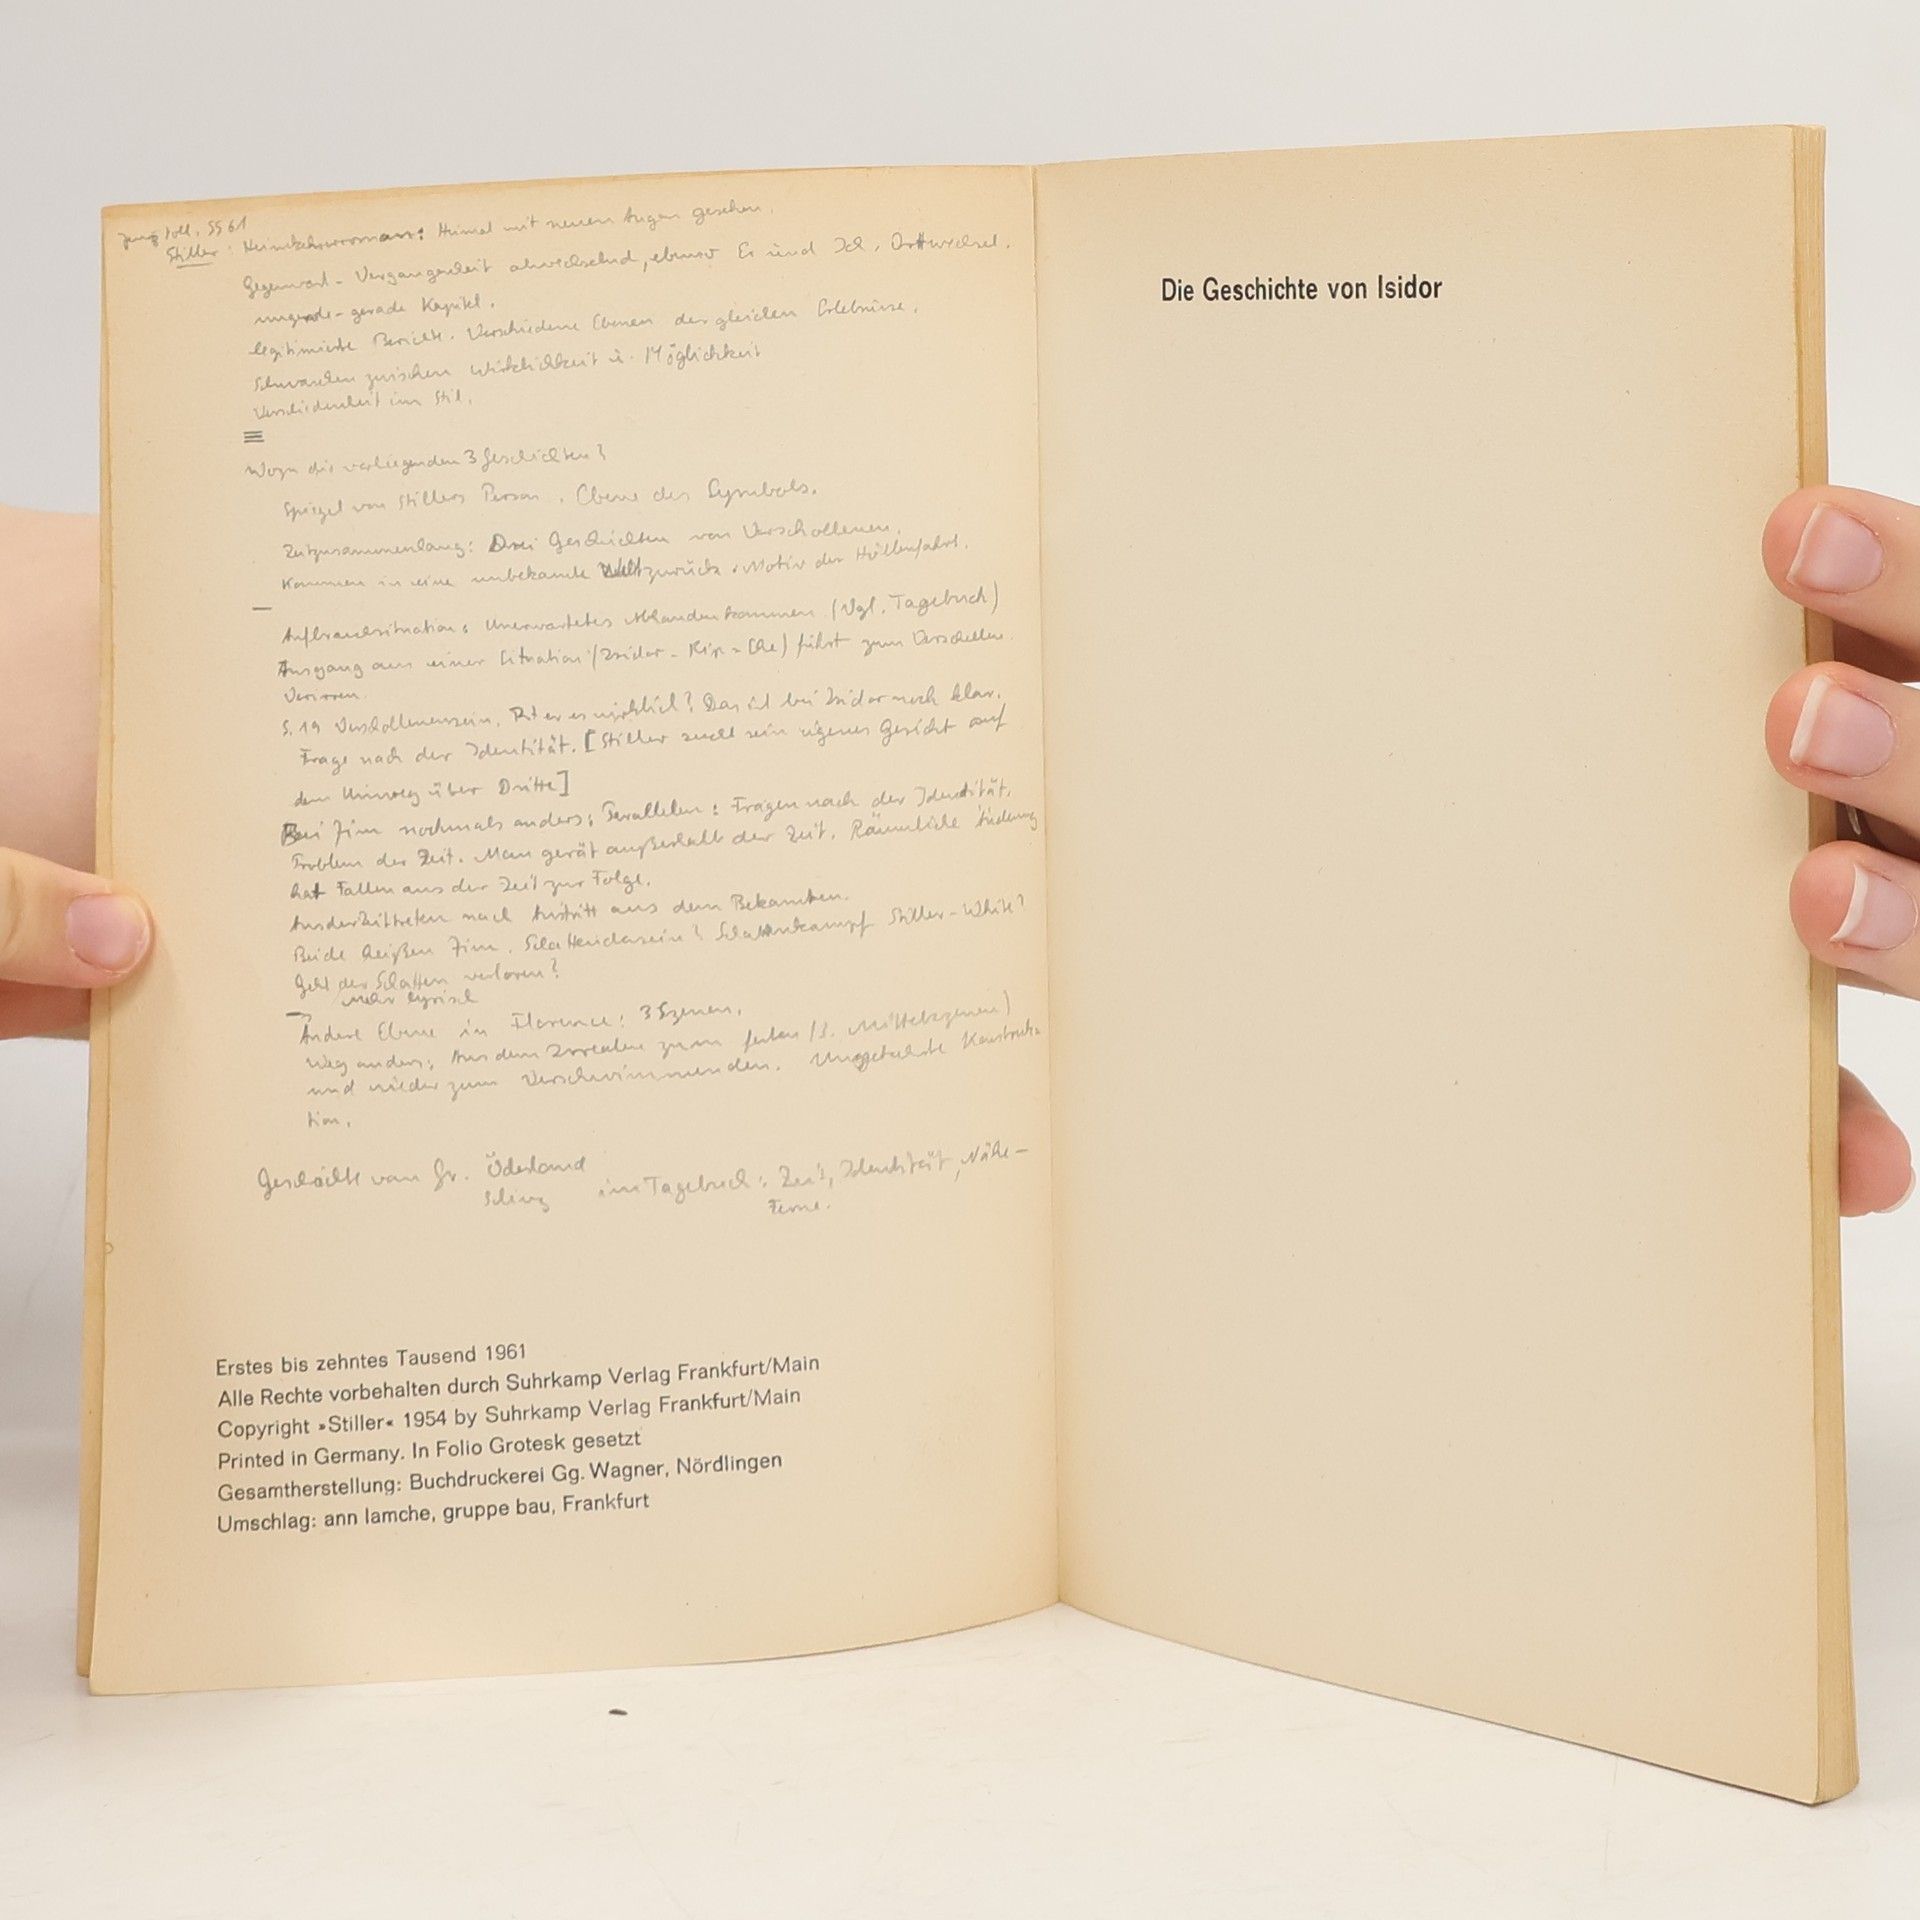 Stiller: Heimkehrerroman: Heimat mit neuen Augen gesehen.
Gegenwart - Vergangenheit abwechselnd, ebenso Er und Ich. Ortwechsel.
ungerade - gerade Kapitel.
legitimierte Berichte. Verschiedene Ebenen der gleichen Erlebnisse.
zwischen Wirklichkeit u. Möglichkeit
Verschiedenheit im Stil.
Wozu die vorliegenden 3 Geschichten?
Spiegel von Stillers Person. Ebene des Symbols.
Zeitzusammenhang: Drei Geschichten von Verschollenen.
Kommen in eine unbekannte Welt zurück. Motiv der Höllenfahrt.
Unerwartetes Abhandenkommen (Vgl. Tagebuch)
Ausgang aus einer Situation (Isidor - Rip = Ehe) führt zum
S. 19 Verschollensein. Ist er es wirklich? Das ist bei Isidor noch klar.
Frage nach der Identität. [Stiller sucht sein eigenes Gesicht auf
dem Umweg über Dritte]
Bei Jim nochmals anders: Parallelen: Fragen nach der Identität.
Problem der Zeit. Man gerät außerhalb der Zeit. Räumliche Änderung
hat Fallen aus der Zeit zur Folge.
nach Austritt aus dem Bekannten.
Beide heißen Jim. Schattendasein? Schattenkampf Stiller - White?
Geht der Schatten verloren?
mehr lyrisch
Andere Ebene in Florence: 3 Szenen.
Weg anders: Aus dem Irrealen zum
und wieder zum Verschwimmenden. Konstruk-
tion.
Geschichte vom Gr. Öderland im Tagebuch: Zeit, Identität, Nähe -
Schinz Ferne.
Erstes bis zehntes Tausend 1961
Alle Rechte vorbehalten durch Suhrkamp Verlag Frankfurt/Main
Copyright »Stiller« 1954 by Suhrkamp Verlag Frankfurt/Main
Printed in Germany. In Folio Grotesk gesetzt
Gesamtherstellung: Buchdruckerei Gg. Wagner, Nördlingen
Umschlag: ann lamche, gruppe bau, Frankfurt
Die Geschichte von Isidor